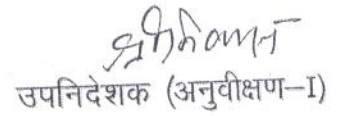 उपनिदेशक (अनुवीक्षण–I)